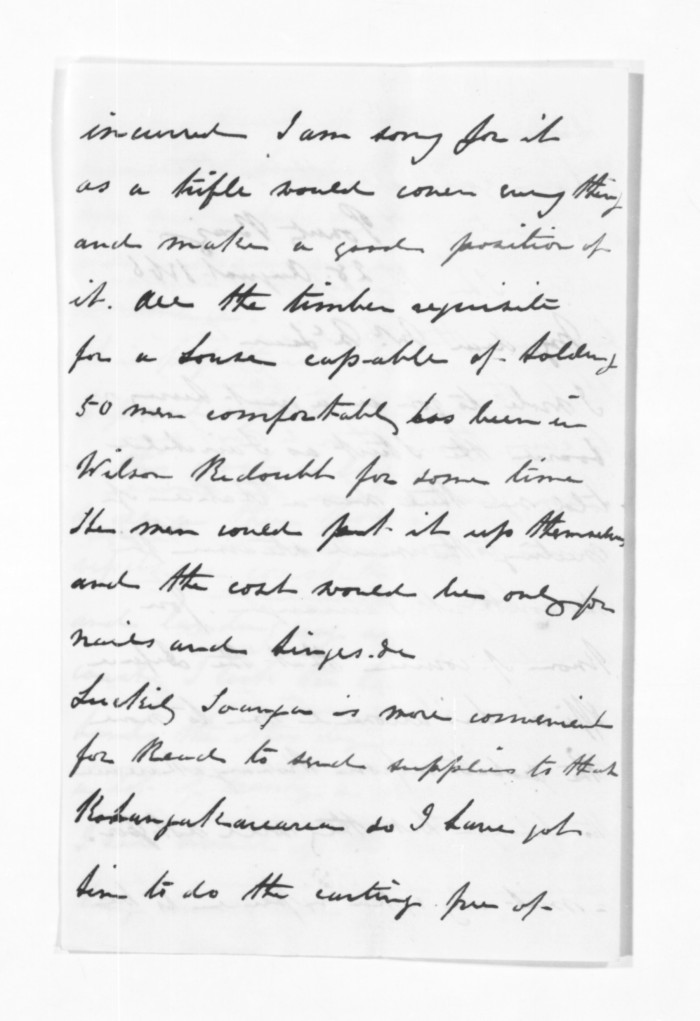 incurred I am sorry for it
as a trifle would cover every thing
and make a good position of
it. All the timber requisite
for a house capable of holding
50 men comfortably has been in
Wilson Redoubt for some time
The men could put it up themselves
and the cost would be only for
nails and hinges &c
Luckily is more convenient
for Read to send supplies to than
so I have got
him to do the carting free of